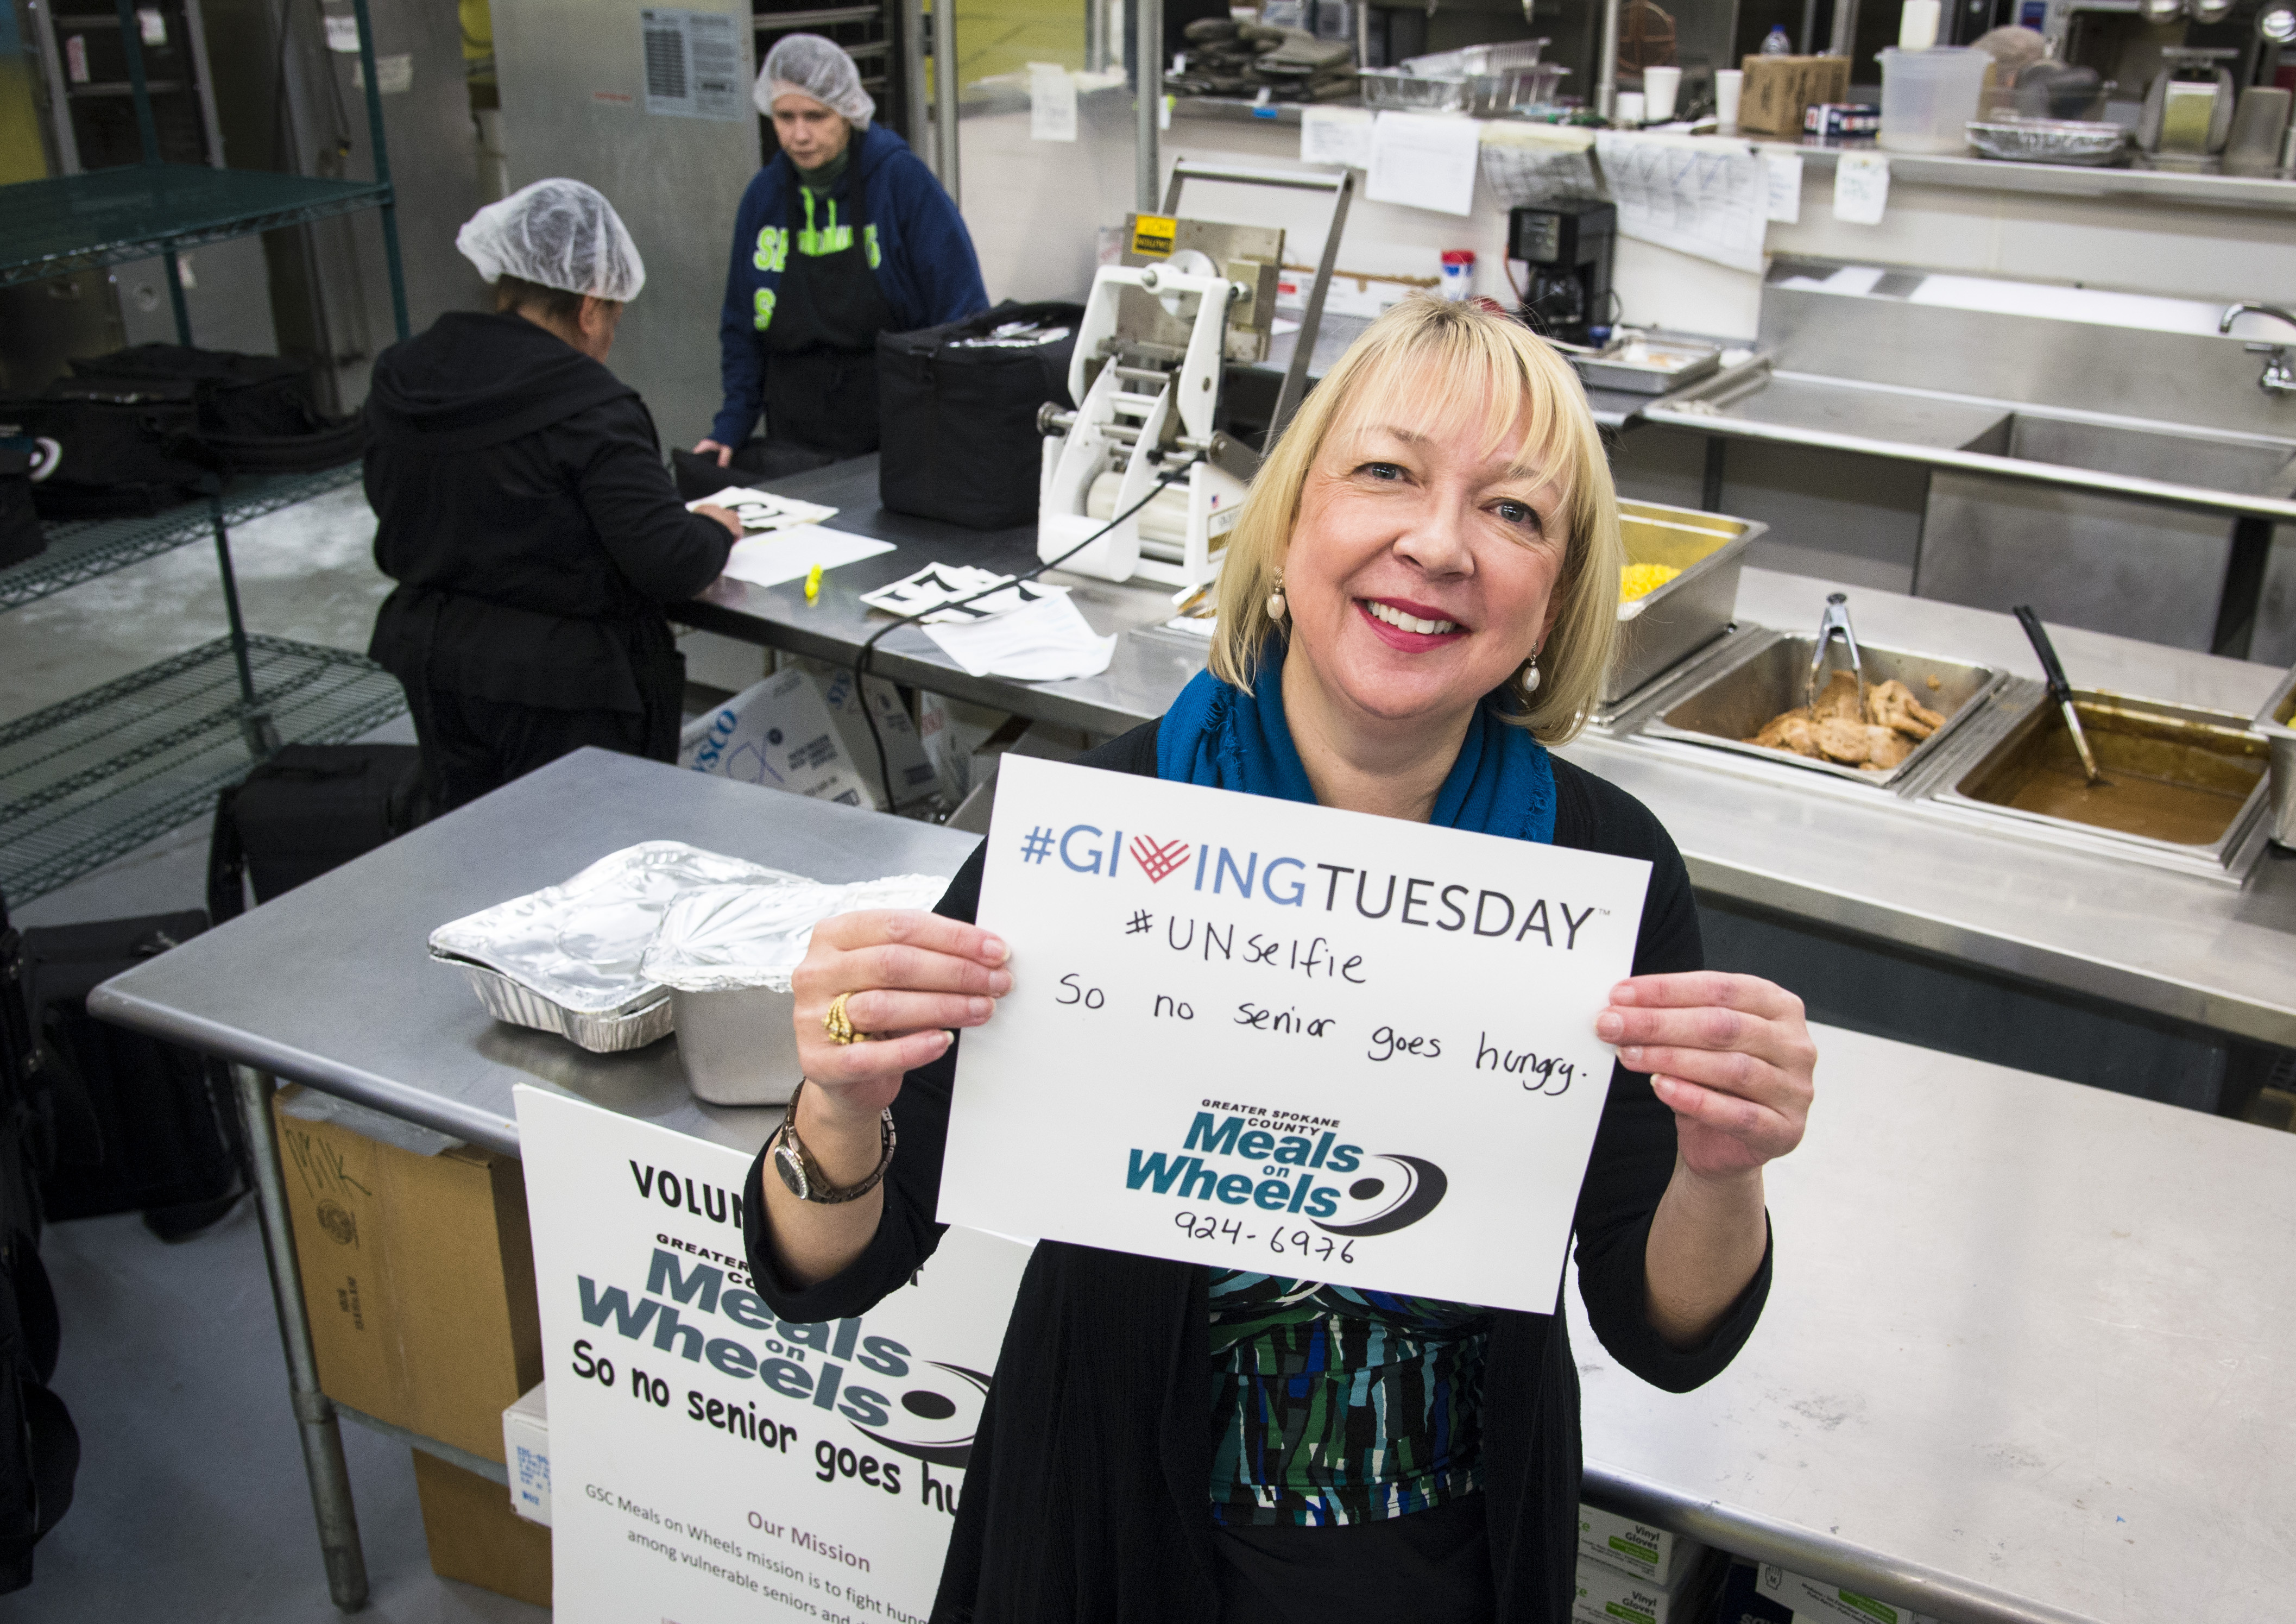 #GIVINGTUESDAY™
#UNselfie
So no senior goes hungry.
GREATER SPOKANE
COUNTY
Meals
on
Wheels
924-6976
GREATER
Meals
on
Wheels
So no senior goes
Our Mission
GSC Meals on Wheels mission is to fight
among vulnerable seniors and
milk
SYSCO
CAUTION
HOT
Vinyl
Gloves
Vinyl
Gloves